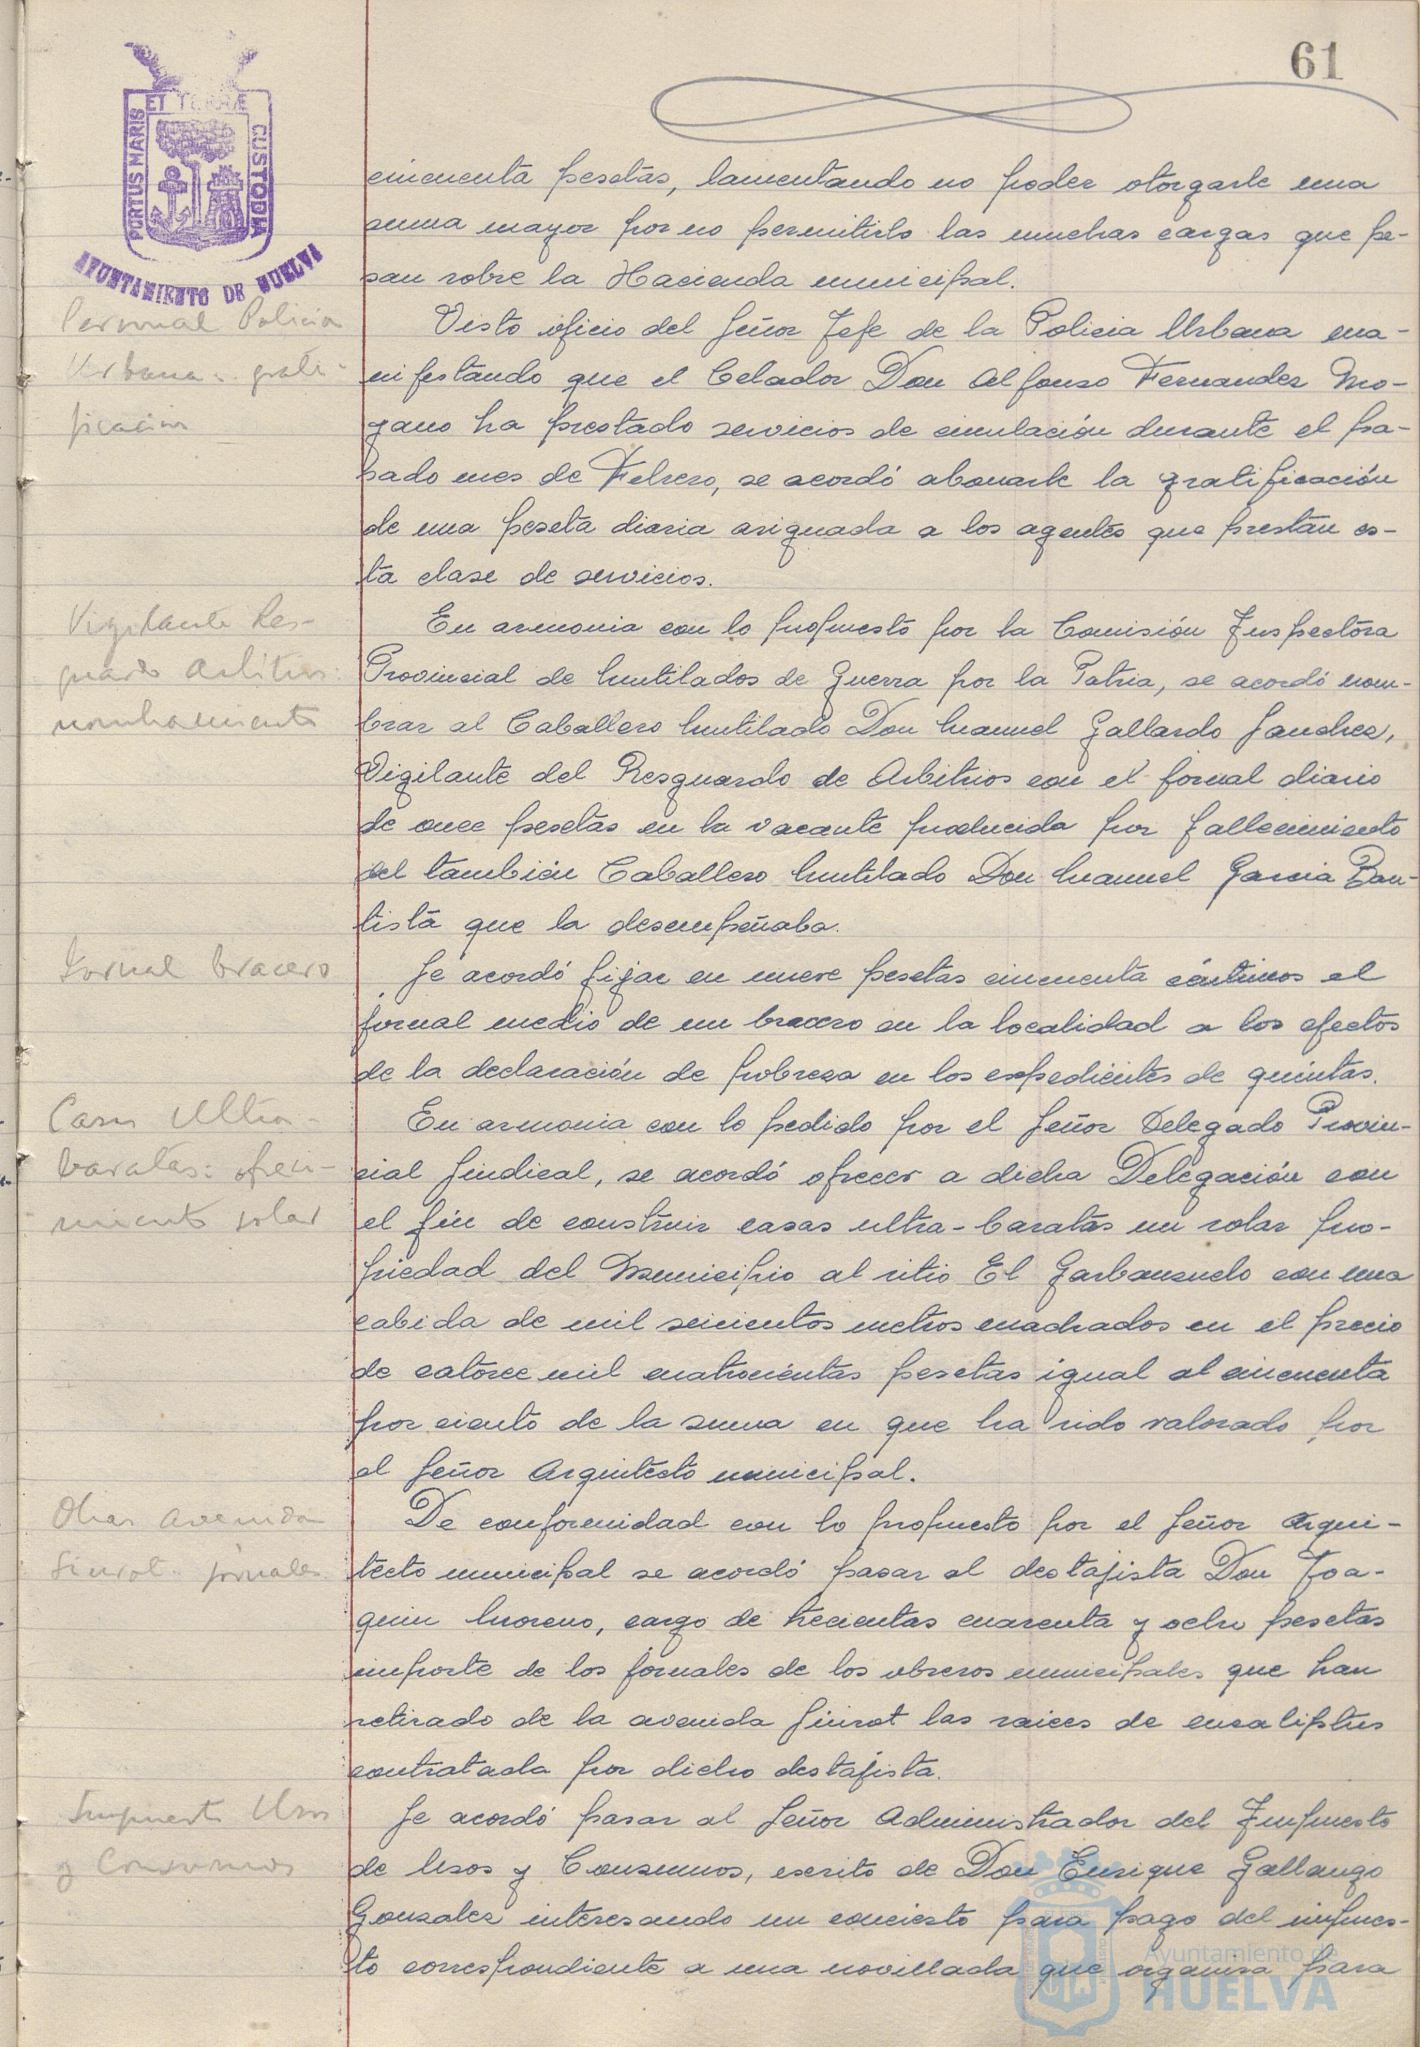 61
PORTUS MARIS ET TERRAE CUSTODIA
AYUNTAMIENTO DE HUELVA
cincuenta pesetas, lamentando no poder otorgarle una
suma mayor por no permitirlo las muchas cargas que pe-
san sobre la Hacienda municipal.
Personal Policia
Urbana: grati-
ficacion
Visto oficio del Señor Jefe de la Policia Urbana ma-
nifestando que el Celador Don Alfonso Fernandez Mo-
yano ha prestado servicios de circulación durante el pa-
sado mes de Febrero, se acordó abonarle la gratificación
de una peseta diaria asignada a los agentes que prestan es-
ta clase de servicios.
Vigilante Res-
guardo Arbitrios:
nombramiento
En armonia con lo propuesto por la Comisión Inspectora
Provincial de Mutilados de Guerra por la Patria, se acordó nom-
brar al Caballero Mutilado Don Manuel Gallardo Sanchez,
Vigilante del Resguardo de Arbitrios con el jornal diario
de once pesetas en la vacante producida por fallecimiento
del también Caballero Mutilado Don Manuel Garcia Bau-
tista que la desempeñaba.
Jornal bracero
Se acordó fijar en nueve pesetas cincuenta céntimos el
jornal medio de un bracero en la localidad a los efectos
de la declaración de pobreza en los expedientes de quintas.
Casas Ultra-
baratas: ofreci-
miento solar
En armonia con lo pedido por el Señor Delegado Provin-
cial Sindical, se acordó ofrecer a dicha Delegación con
el fin de construir casas ultra-baratas un solar pro-
piedad del Municipio al sitio El Garbanzuelo con una
cabida de mil seiscientos metros cuadrados en el precio
de catorce mil cuatrocientas pesetas igual al cincuenta
por ciento de la suma en que ha sido valorado por
el Señor Arquitecto municipal.
Obras Avenida
Siurot: jornales
De conformidad con lo propuesto por el Señor Arqui-
tecto municipal se acordó pasar al destajista Don Joa-
quin Moreno, cargo de trecientas cuarenta y ocho pesetas
importe de los jornales de los obreros municipales que han
retirado de la avenida Siurot las raices de eucaliptus
contratada por dicho destajista.
Impuesto Usos
y Consumos
Se acordó pasar al Señor Administrador del Impuesto
de Usos y Consumos, escrito de Don Enrique Gallango
Gonzalez interesando un concierto para pago del impues-
to correspondiente a una novillada que organiza para
Ayuntamiento de
HUELVA